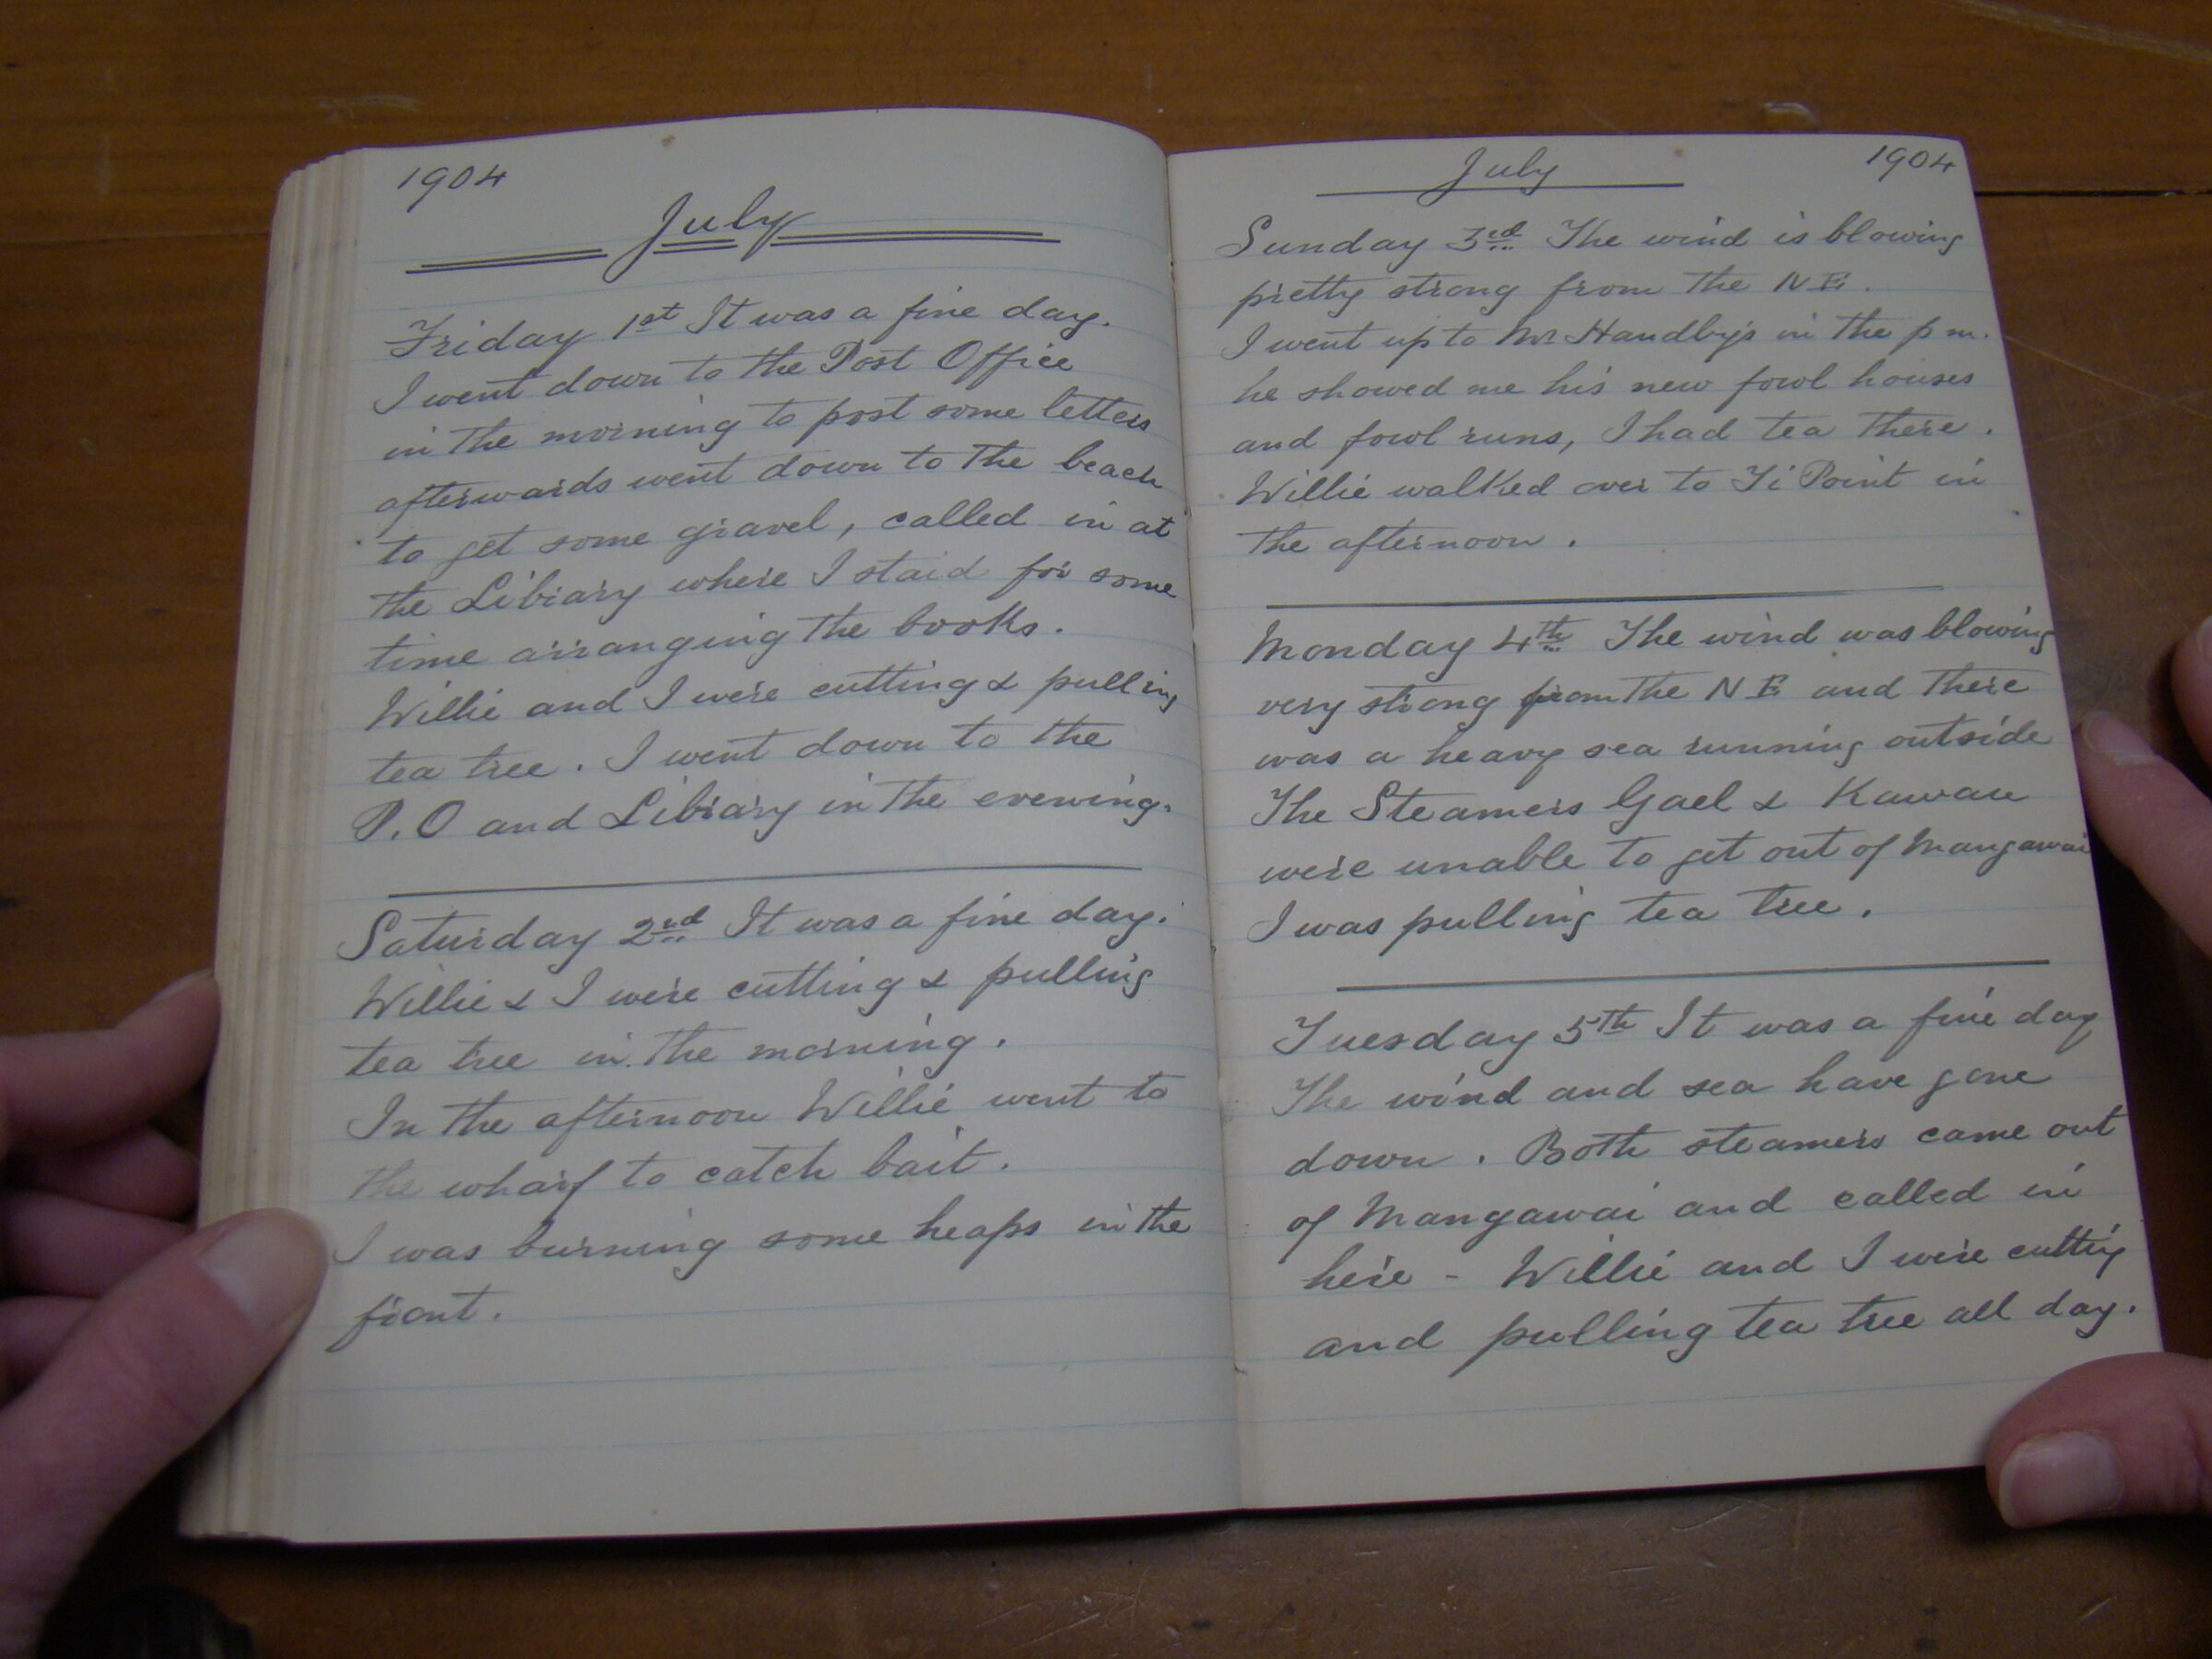 1904
July
Friday 1st It was a fine day.
I went down to the Post Office
in the morning to post some letters
afterwards went down to the beach
to get some gravel, called in at
the Library where I staid for some
time arranging the books.
Willie and I were cutting & pulling
tea tree. I went down to the
P.O and Library in the evening.
Saturday 2nd It was a fine day.
Willie & I were cutting & pulling
tea tree in the morning.
In the afternoon Willie went to
the wharf to catch bait.
I was burning some heaps in the
front.
July 1904
Sunday 3rd The wind is blowing
pretty strong from the N E.
I went up to Mr Handby's in the p m.
he showed me his new fowl houses
and fowl runs, I had tea there.
Willie walked over to Ti Point in
the afternoon.
Monday 4th The wind was blowing
very strong from the N E and there
was a heavy sea running outside
The Steamers Gael & Kawau
were unable to get out of Mangawai
I was pulling tea tree.
Tuesday 5th It was a fine day
The wind and sea have gone
down. Both steamers came out
of Mangawai and called in
here - Willie and I were cutting
and pulling tea tree all day.